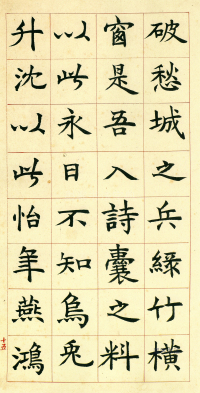 破愁城之兵綠竹橫
窗是吾入詩囊之料
以此永日不知烏兎
升沈以此怡年燕鴻
十五